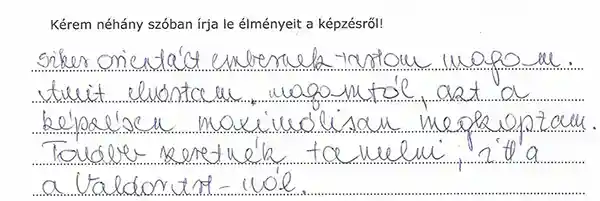 Kérem néhány szóban írja le élményeit a képzésről!
Siker orientált embernek tartom magam.
Amit elvártam magamtól, azt a
képzésen maximálisan megkaptam.
Tovább szeretnék tanulni, itt a
a Valdorurt-nál.